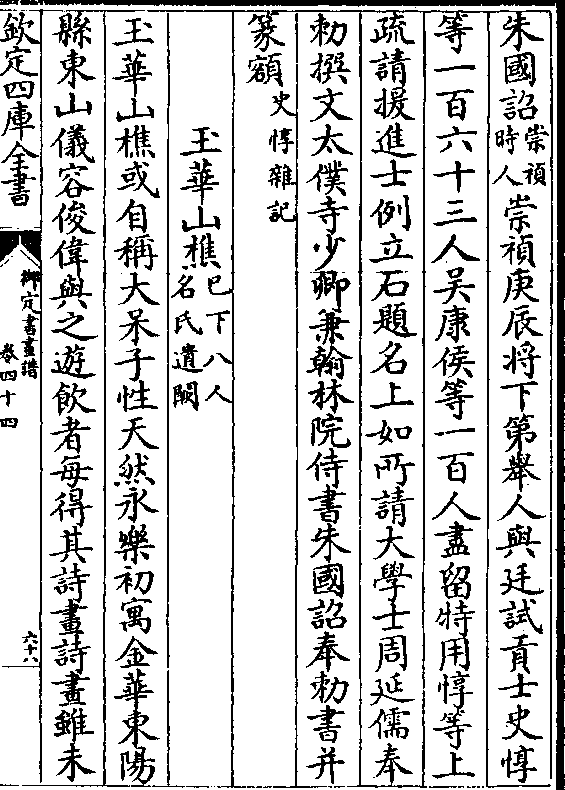 朱國詔崇禎時人崇禎庚辰将下第舉人與廷試貢士史惇
等一百六十三人吴康侯等一百人盡留特用惇等上
疏請援進士例立石題名上如所請大學士周延儒奉
勅撰文太僕寺少卿兼翰林院侍書朱國詔奉勅書并
篆額史惇雜記
玉華山樵已下八人名氏遺闕
玉華山樵或自稱大呆子性天然永樂初寓金華東陽
縣東山儀容俊偉與之遊飲者每得其詩畫詩畫雖未
欽定四庫全書
御定書畫譜
卷四十四
六十八